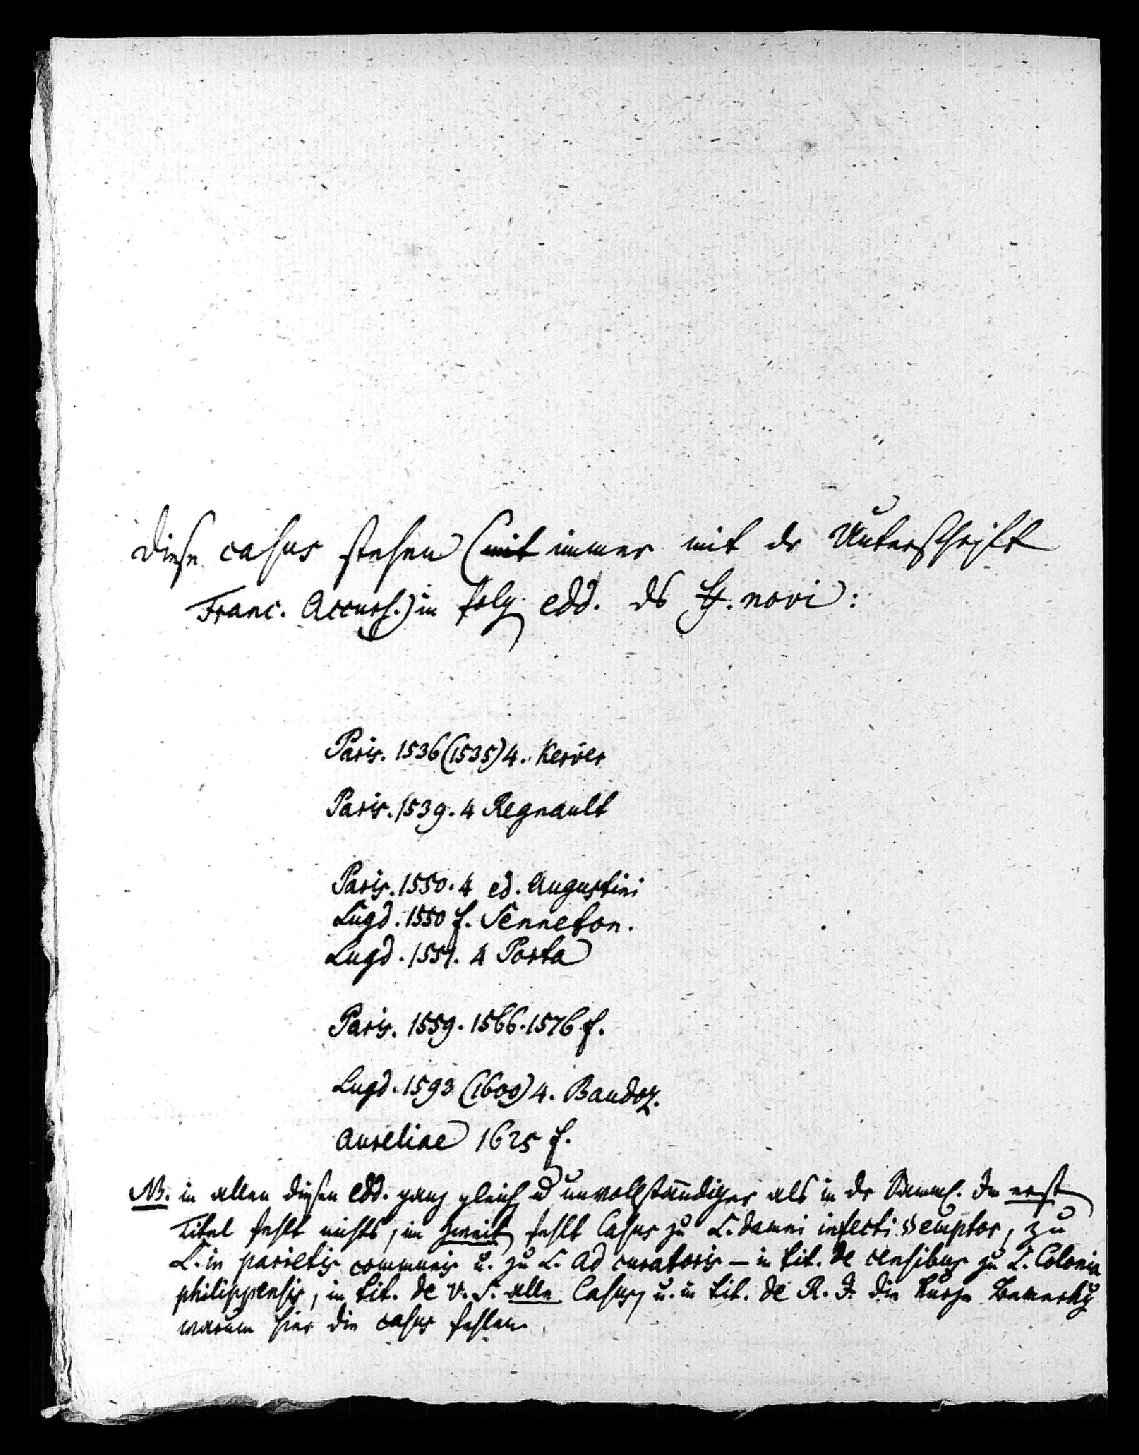 Diese casus stehen (mit immer mit dr Unterschrift
Franc. Accurs.) in folg. edd. ds ff. novi:
Paris. 1536 (1535) 4. Kerver
Paris. 1539. 4 Regnault
Paris. 1550. 4 ed. Augustini
Lugd. 1550 f. Senneton.
Lugd. 1551. 4 Porta
Paris. 1559. 1566. 1576 f.
Lugd. 1593 (1600) 4. Baudoz.
Aureliae 1625 f.
NB. in allen diesen edd. ganz gleich u unvollständiger als in dr Samml. Im erst
Titel fehlt nichts, im zweit fehlt Casus zu L. damni infecti emptor, zu
L. in parietis communis u. zu L. ad curatoris – in tit. de censibus zu L. Colonia
philippensis, in tit. de V. S. alle Casus, u. in tit. de R. J. die kurze Bemerkg
warum hier die casus fehlen.